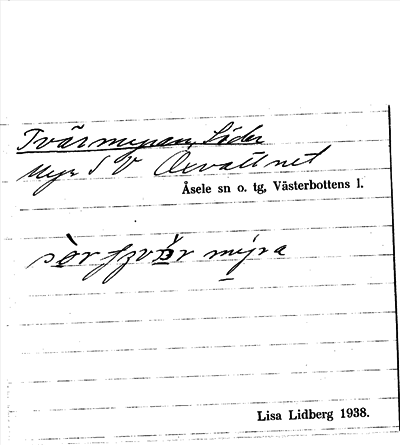 Tvärmyran, Söder
Myr S V Oxvattnet
Åsele sn o. tg, Västerbottens l.
myra
Lisa Lidberg 1938.